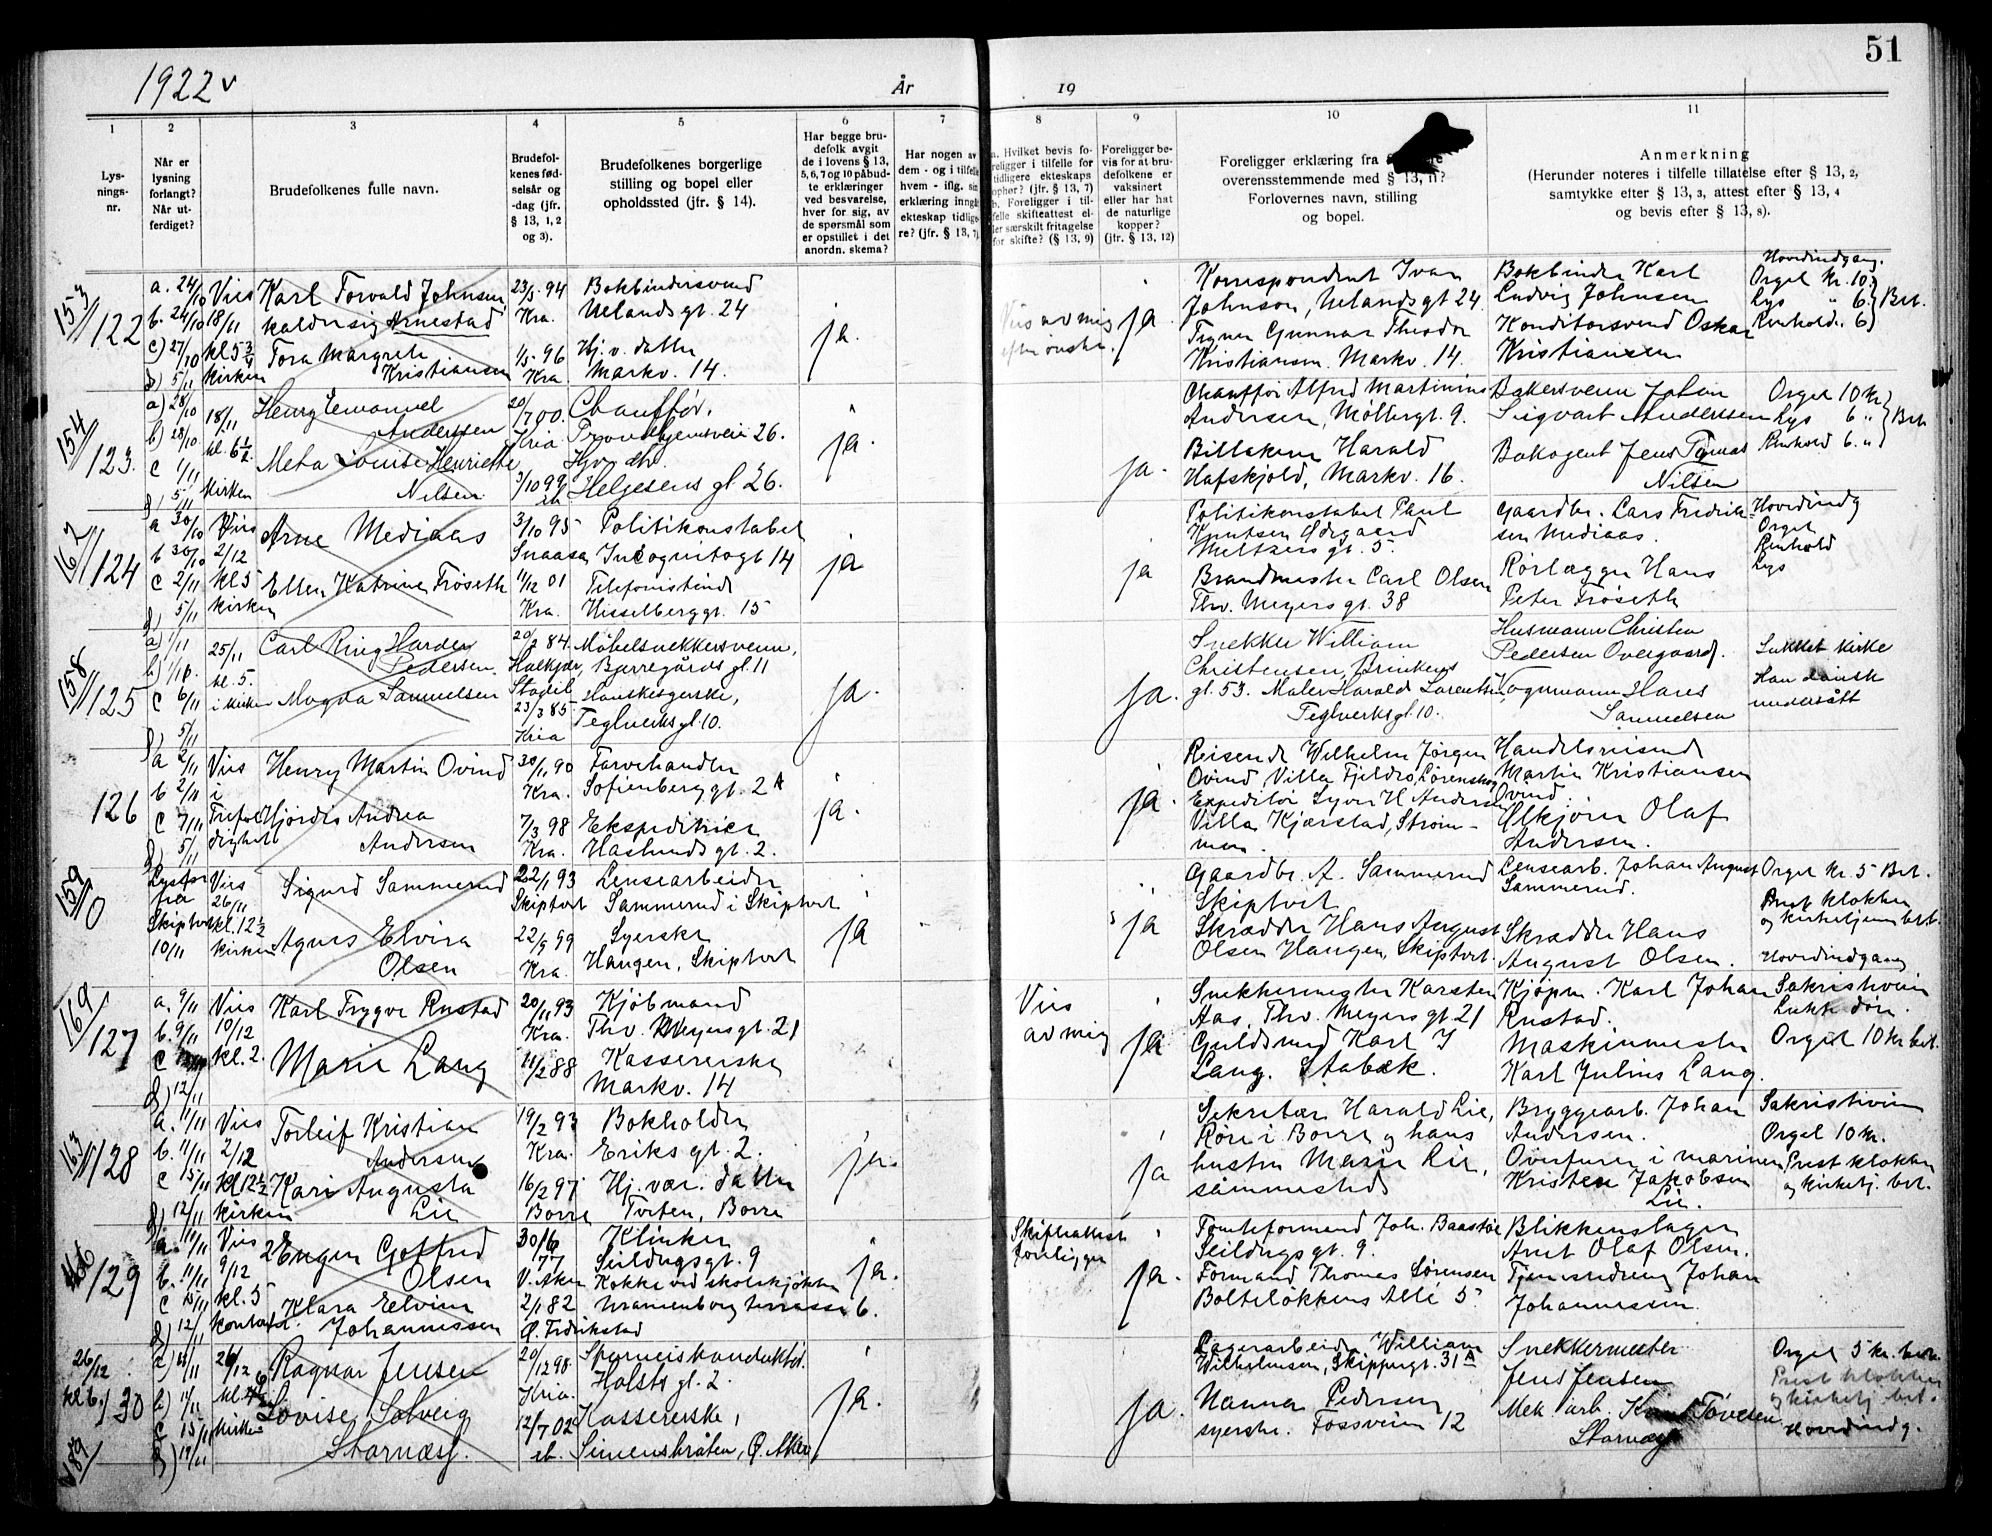 51
1922
År
19
1
2
3
4
5
6
7
8
9
10
11
Lys-
nings-
nr.
Når er
lysning
forlangt?
Når ut-
ferdiget?
Brudefolkenes fulle navn.
Brudefol-
kenes fød-
selsår og
-dag (jfr.
§ 13, 1, 2
og 3).
Brudefolkenes borgerlige
stilling og bopel eller
opholdssted (jfr. § 14).
Har begge bru-
defolk avgit
de i lovens § 13,
5, 6, 7 og 10 påbud-
te erklæringer
ved besvarelse,
hver for sig, av
de spørsmål som
er opstillet i det
anordn. skema?
Har nogen av
dem - og i tilfelle
hvem - iflg. sin
erklæring inngått
ekteskap tidlige-
re? (jfr. § 13, 7)
a. Hvilket bevis fo-
religger i tilfelle for
tidligere ekteskaps
ophør? (jfr. § 13, 7)
b. Foreligger i til-
felle skifteattest el-
ler særskilt fritagelse
for skifte? (§ 13, 9)
Foreligger be-
vis for at bru-
defolkene er
vaksinert
eller har hat
de naturlige
kopper?
(jfr. § 13, 12)
Foreligger erklæring fra
overensstemmende med § 13, 11?
Forlovernes navn, stilling
og bopel.
Anmerkning
(Herunder noteres i tilfelle tillatelse efter § 13, 2,
samtykke efter § 13, 3, attest efter § 13, 4
og bevis efter § 13, 8).
153/122
a. 24/10
b. 24/10
c) 27/10
d) 5/11
Vies
18/11
kl 5 3/4
kirken
Karl Torvald Johnsen
kalder sig Arnestad
Tora Margrete
Kristiansen
23/5. 94
Kra.
1/5. 96
Kra
Bokbindersvend
Uelands gt. 24
Hj. v. datter
Markv. 14.
ja.
Vies av mig
ja.
Korrespondent Ivar
Johnson, Uelandsgt 24
Trygve Gunnar Theodor
Kristiansen Markv. 14.
Bokbinder Karl
Ludvig Johnsen
Konditorsvend Oskar
Kristiansen
Hovedindgang.
Orgel kr. 10.
Lys " 6.
Renhold. 6
Bet.
154/123.
a) 28/10
b) 28/10.
c 1/11
d) 5/11
18/11
kl. 6 1/2
Kirken
Henry Emanuel
Anderssen
Meta Louise Henriette
Nilsen
20/7 00.
Kria
3/10 99
ib
Chauffør.
Trondhjemsveien 26.
Hgv. dtr.
Helgesens gt 26.
ja
ja.
Chauffør Alfred Martinius
Andersen, Møllergt. 9.
Harald
Hafskjold, Markv. 16.
Bakersvenn Johan
Sigvart Anderssen
Bokagent Jens Tomas
Nilsen
Orgel 10 kr
Lys 6 "
Renhold 6. "
Bet.
162/124
a 30/10
b 30/10
c 2/11
d) 5/11
Vies
2/12
kl 5
kirken
Arne Mediaas
Ellen Katrine Frøseth
3/10 95
Snaasa
11/12 01
Kra.
Politikonstabel
Incognitogt 14
Telefonistinde
Hisselberggt. 15
ja
ja
Politikonstabel Paul
Knutsen Ødegaard
Meltzers gt. 5.
Brandmester Carl Olsen
Thv. Meyers gt. 38
Gaardbr. Lars Fredrik-
sen Mediaas.
Rørlægger Hans
Peter Frøseth
Hovedindg
Orgel
Renhold
Lys
158/125
a) 1/11
b) 1/10.
c 6/11
d) 5/11
25/11
kl. 5.
i kirken
Carl Ring Harder
Pedersen.
Magda Samuelsen
20/2 84.
Stadil
23/3 85.
Kria
Møbelsnekkersvenn,
Bjerregårds gt. 11
Hanskesyerske,
Teglverksgt. 10.
ja.
ja.
Snekker William
Christensen, Brinkens
gt. 53. Maler Harald Lorentzen,
Teglverksgt. 10.
Husmann Christen
Pedersen Overgaard.
Vognmann Hans
Samuelsen
Lukket kirke
Han dansk
undersått
126
a 2/11
b 2/11
c 7/11
d) 5/11
Vies
i
Trefol-
dighet
Henry Martin Ovind
Hjørdis Andrea
Andersen
30/11 90
Kra.
7/3 98
Kra.
Farvehandler
Sofienberg gt. 2 A
Ekspeditrice
Haslunds gt. 2.
ja.
ja.
Reisende Wilhelm Jørgen
Ovind, Villa Fjeldro, Lørenskog
Expeditør Syver H Andersen
Villa Kjærstad, Strøm-
men.
Handelsreisende
Martin Kristiansen
Ovind
Ølkjører Olaf
Andersen.
159/0
Lyst
fra
Skiptvet
10/11
Vies
26/11
kl. 12 1/2
kirken
Sigurd Sammerud
Agnes Elvira
Olsen
22/1 93
Skiptvet
22/9 99
Kra.
Lensearbeider
Sammerud i Skiptvet
Syerske
Haugen, Skiptvet
ja
ja
Gaardbr. A. Sammerud
Skiptvet
Skrædder Hans August
Olsen Haugen, Skiptvet.
Lensearb. Johan August
Sammerud.
Skrædder Hans
August Olsen.
Orgel Kr. 5 Bet.
Prest klokker
og kirketjener bet.
Hovedindgang
169/127
a. 9/11
b. 9/11
c
d) 12/11
Vies
10/12
kl. 2.
Karl Trygve Rustad
Marie Lang
20/11 93
Kra.
11/2 88
Kjøbmand
Thv. Meyers gt. 21
Kassererske
Markv. 14
Vies
av mig
ja
Snekkermester Karsten
Aas, Thv. Meyers gt 21
Guldsmed Karl J
Lang. Stabæk.
Kjøpm. Karl Johan
Rustad.
Maskinmester
Karl Julius Lang.
Sakristveien
Lukte dører.
Orgel 10 kr bet.
163/128
a. 11/11
b. 11/11
c 15/11
d) 12/11
Vies
2/12
Kl 12 1/2
kirken
Torleif Kristian
Andersen
Kari Augusta
Lie
19/2 93
Kra.
16/2 97
Borre
Bokholder
Eriks gt. 2.
Hj. vær. datter
Tveten, Borre
ja.
ja
Sekretær Harald Lie,
Røre i Borre og hans
hustru Marie Lie,
sammesteds
Bryggearb. Johan
Andersen.
Overfurer i marinen
Kristen Jakobsen
Lie.
Sakristiveien
Orgel 10 kr.
Prest klokker
og kirketj. bet.
129
a. 11/11
b. 11/11
c 15/11
d) 12/11
Vies
9/12
kl. 5
kontoret.
Eugen Gotfred
Olsen
Klara Elvine
Johannessen
30/6
77
V. Aker
2/1 82
Ø. Fredrikstad
Klinker
Seildugsgt. 9
Kokke ved skolekjøkken
Uranienborg terrasse 6.
ja.
Skifteattest
foreligger
ja.
Tomteformand Joh. Baastøe
Seildugsgt. 9.
Formand Thomas Sørensen
Bolteløkkens Allé 5
Blikkenslager
Arnt Olaf Olsen.
Tjenestedreng Johan
Johannessen.
26/12
kl 6.
130
189/
a) 11/11
b) 11/11
c 15/11
d) 12/11
26/12
kl.
Kirken
Ragnar Jensen
Lovise Solveig
Stornæs.
20/12 98
Kria.
12/7 02
ib.
Sporveiskonduktør.
Holsts gt. 2.
Kassererske,
Simensbråten, Ø. Aker
ja.
ja.
Lagerarbeider William
Wilhelmsen, Skippergt. 31 A
Nanna Pedersen
syerske. Fossveien 12
Snekkermester
Jens Jensen
Mek. arb.
Stornæs
Orgel 5 kr. bet.
Prest klokker
og kirketj. bet.
Hovedindg.